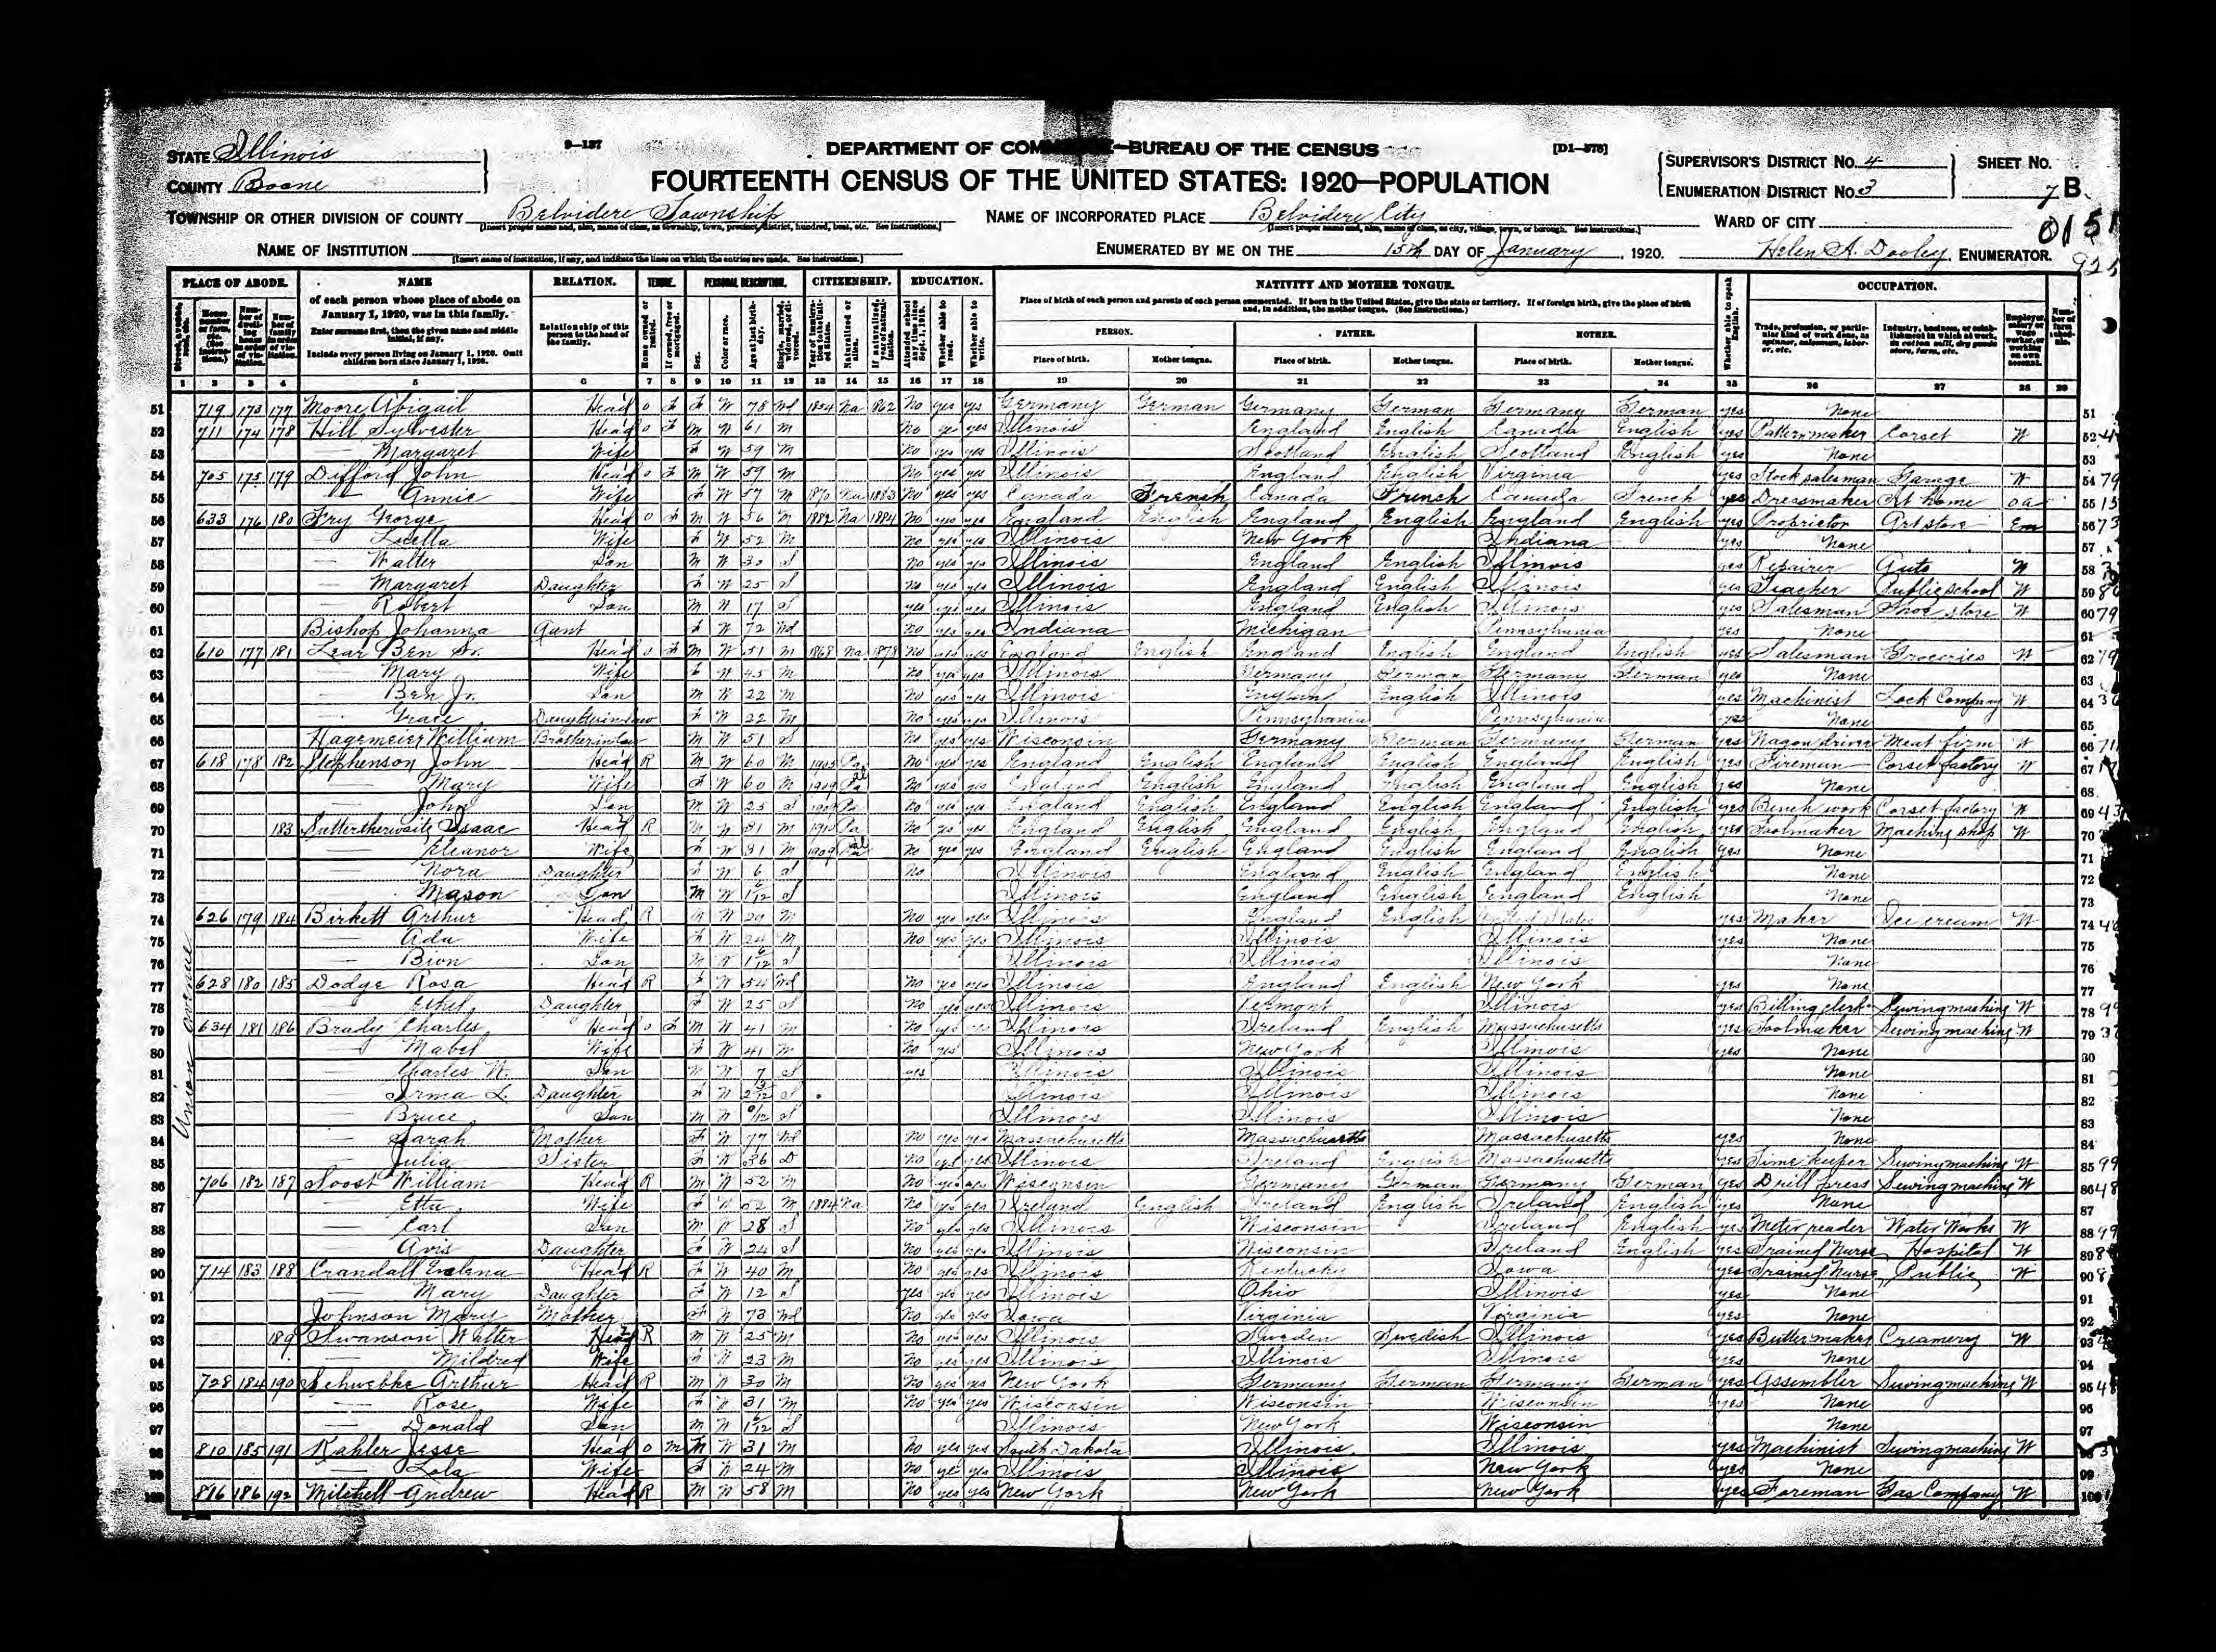 9—137
DEPARTMENT OF COMMERCE—BUREAU OF THE CENSUS
[D1—578]
STATE Illinois
COUNTY Boone
FOURTEENTH CENSUS OF THE UNITED STATES: 1920—POPULATION
SUPERVISOR'S DISTRICT No. 4
ENUMERATION DISTRICT No. 3
SHEET No.
7 B
TOWNSHIP OR OTHER DIVISION OF COUNTY Belvidere Township
[Insert proper name and, also, name of class, as township, town, precinct, district, hundred, beat, etc. See instructions.]
NAME OF INCORPORATED PLACE Belvidere City
[Insert proper name and, also, name of class, as city, village, town, or borough. See instructions.]
WARD OF CITY
NAME OF INSTITUTION
[Insert name of institution, if any, and indicate the lines on which the entries are made. See instructions.]
ENUMERATED BY ME ON THE 15th DAY OF January, 1920. Helen A. Dooley, ENUMERATOR.
PLACE OF ABODE. NAME RELATION. TENURE. PERSONAL DESCRIPTION. CITIZENSHIP. EDUCATION. NATIVITY AND MOTHER TONGUE. OCCUPATION.
of each person whose place of abode on January 1, 1920, was in this family.
Enter surname first, then the given name and middle initial, if any.
Include every person living on January 1, 1920. Omit children born since January 1, 1920.
Relationship of this person to the head of the family.
Place of birth of each person and parents of each person enumerated. If born in the United States, give the state or territory. If of foreign birth, give the place of birth and, in addition, the mother tongue. (See instructions.)
PERSON. FATHER. MOTHER.
Place of birth. Mother tongue. Place of birth. Mother tongue. Place of birth. Mother tongue.
1 2 3 4 5 6 7 8 9 10 11 12 13 14 15 16 17 18 19 20 21 22 23 24 25 26 27 28 29
51 719 173 177 Moore Abigail Head O F F W 78 Wd 1854 Na 1862 No yes yes Germany German Germany German Germany German yes None
52 711 174 178 Hill Sylvester Head O F M W 61 M No yes yes Illinois England English Canada English yes Pattern maker Corset W
53 Margaret Wife F W 59 M No yes yes Illinois Scotland English Scotland English yes None
54 705 175 179 Difford John Head O F M W 59 M No yes yes Illinois England English Virginia yes Stock salesman Garage W
55 Annie Wife F W 57 M 1870 Na 1883 No yes yes Canada French Canada French Canada French yes Dressmaker At home oa
56 633 176 180 Fry George Head O F M W 56 M 1882 Na 1884 No yes yes England English England English England English yes Proprietor Art store Em
57 Luella Wife F W 52 M No yes yes Illinois New York Indiana yes None
58 Walter Son M W 30 S No yes yes Illinois England English Illinois yes Repairer Auto W
59 Margaret Daughter F W 25 S No yes yes Illinois England English Illinois yes Teacher Public school W
60 Robert Son M W 17 S yes yes yes Illinois England English Illinois yes Salesman Shoe store W
61 Bishop Johanna Aunt F W 72 Wd No yes yes Indiana Michigan Pennsylvania yes None
62 610 177 181 Lear Ben Sr. Head O F M W 51 M 1868 Na 1878 No yes yes England English England English England English yes Salesman Groceries W
63 Mary Wife F W 45 M No yes yes Illinois Germany German Germany German yes None
64 Ben Jr. Son M W 22 M No yes yes Illinois England English Illinois yes Machinist Lock Company W
65 Grace Daughterinlaw F W 22 M No yes yes Illinois Pennsylvania Pennsylvania yes None
66 Hagemeier William Brotherinlaw M W 51 S No yes yes Wisconsin Germany German Germany German yes Wagon driver Meat firm W
67 618 178 182 Stephenson John Head R M W 60 M 1905 Pa No yes yes England English England English England English yes Fireman Corset factory W
68 Mary Wife F W 60 M 1909 No yes yes England English England English England English yes None
69 John Son M W 25 S 1909 Pa No yes yes England English England English England English yes Bench work Corset factory W
70 183 Sutterthwaite Isaac Head R M W 31 M 1911 Pa No yes yes England English England English England English yes Toolmaker Machine shop W
71 Eleanor Wife F W 31 M 1909 No yes yes England English England English England English yes None
72 Nora Daughter F W 6 S No Illinois England English England English None
73 Mason Son M W S Illinois England English England English None
74 626 179 184 Birkett Arthur Head R M W 29 M No yes yes Illinois England English United States yes Maker Ice cream W
75 Ada Wife F W 24 M No yes yes Illinois Illinois Illinois yes None
76 Bion Son M W 1 6/12 S Illinois Illinois Illinois None
77 628 180 185 Dodge Rosa Head R F W 54 Wd No yes yes Illinois England English New York yes None
78 Ethel Daughter F W 25 S No yes yes Illinois Vermont Illinois yes Billing clerk Sewing machine W
79 634 181 186 Brady Charles Head O F M W 41 M No yes yes Illinois Ireland English Massachusetts yes Toolmaker Sewing machine W
80 Mabel Wife F W 41 M No yes Illinois New York Illinois yes None
81 Charles W. Son M W 7 S yes Illinois Illinois Illinois None
82 Irma L. Daughter F W 2 3/12 S Illinois Illinois Illinois None
83 Bruce Son M W 0/12 S Illinois Illinois Illinois None
84 Sarah Mother F W 77 Wd No yes yes Massachusetts Massachusetts Massachusetts yes None
85 Julia Sister F W 36 D No yes yes Illinois Ireland English Massachusetts yes Time keeper Sewing machine W
86 706 182 187 Soost William Head R M W 52 M No yes yes Wisconsin Germany German Germany German yes Drill press Sewing machine W
87 Etta Wife F W 52 M 1884 Na No yes yes Ireland English Ireland English Ireland English yes None
88 Carl Son M W 28 S No yes yes Illinois Wisconsin Ireland English yes Meter reader Water Works W
89 Avis Daughter F W 24 S No yes yes Illinois Wisconsin Ireland English yes Trained Nurse Hospital W
90 714 183 188 Crandall Evelena Head R F W 40 M No yes yes Illinois Kentucky Iowa yes Trained Nurse Public W
91 Mary Daughter F W 12 S yes yes yes Illinois Ohio Illinois yes None
92 Johnson Mary Mother F W 73 Wd No yes yes Iowa Virginia Virginia yes None
93 189 Swanson Walter Head R M W 25 M No yes yes Illinois Sweden Swedish Illinois yes Butter maker Creamery W
94 Mildred Wife F W 23 M No yes yes Illinois Illinois Illinois yes None
95 728 184 190 Schwebke Arthur Head R M W 30 M No yes yes New York Germany German Germany German yes Assembler Sewing machine W
96 Rose Wife F W 31 M No yes yes Wisconsin Wisconsin Wisconsin yes None
97 Donald Son M W 1 6/12 S Illinois New York Wisconsin None
98 810 185 191 Kahler Jesse Head O M M W 31 M No yes yes South Dakota Illinois Illinois yes Machinist Sewing machine W
99 Lola Wife F W 24 M No yes yes Illinois Illinois New York yes None
100 816 186 192 Mitchell Andrew Head R M W 58 M No yes yes New York New York New York yes Foreman Gas Company W
Union avenue